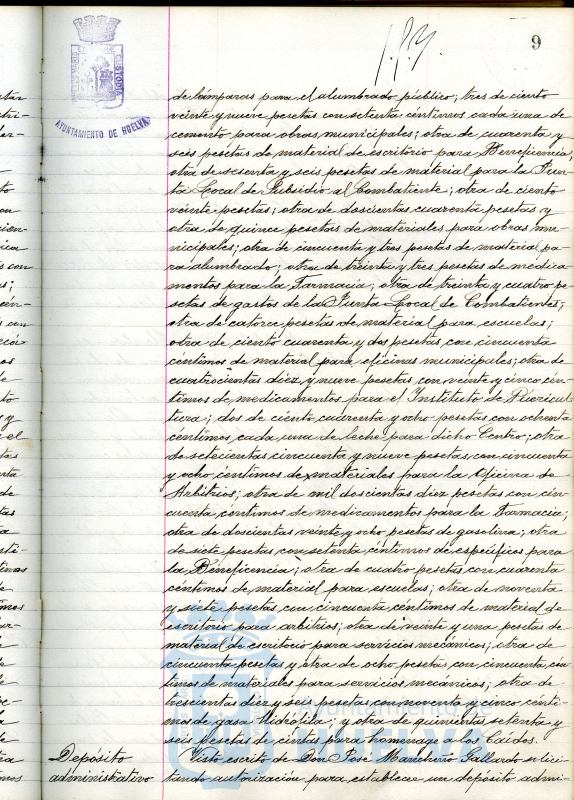 9
CUSTODIA
AYUNTAMIENTO DE HUELVA
de lámparas para el alumbrado público; tres de ciento
veinte y nueve pesetas con setenta céntimos cada una de
cemento para obras municipales; otra de cuarenta y
seis pesetas de material de escritorio para Beneficencia;
otra de sesenta y seis pesetas de material para la Jun-
ta Local de Subsidio al Combatiente; otra de ciento
veinte pesetas; otra de doscientas cuarenta pesetas y
otra de quince pesetas de materiales para obras mu-
nicipales; otra de cincuenta y tres pesetas de material pa-
ra alumbrado; otra de treinta y tres pesetas de medica-
mentos para la Farmacia; otra de treinta y cuatro pe-
setas de gastos de la Junta Local de Combatientes;
otra de catorce pesetas de material para escuelas;
otra de ciento cuarenta y dos pesetas con cincuenta
céntimos de material para oficinas municipales; otra de
cuatrocientas diez y nueve pesetas con veinte y cinco cén-
timos de medicamentos para el Instituto de Puericul-
tura; dos de ciento cuarenta y ocho pesetas con ochenta
céntimos cada una de leche para dicho Centro; otra
de setecientas cincuenta y nueve pesetas con cincuenta
y ocho céntimos de materiales para la Oficina de
Arbitrios; otra de mil doscientas diez pesetas con cin-
cuenta céntimos de medicamentos para la Farmacia;
otra de doscientas veinte y ocho pesetas de gasolina; otra
de siete pesetas con setenta céntimos de específicos para
la Beneficencia; otra de cuatro pesetas con cuarenta
céntimos de material para escuelas; otra de noventa
y siete pesetas con cincuenta céntimos de material de
escritorio para arbitrios; otra de veinte y una pesetas de
material de escritorio para servicios mecánicos; otra de
cincuenta pesetas y otra de ocho pesetas con cincuenta cén
timos de materiales para servicios mecánicos; otra de
trescientas diez y seis pesetas con noventa y cinco cénti-
mos de gasa hidrófila; y otra de quinientas setenta y
seis pesetas de cintas para homenage a los Caídos.
Depósito
administrativo
Visto escrito de Don José Manchero Gallardo solici-
tando autorización para establecer un depósito admi-
Ayuntamiento de
HUELVA